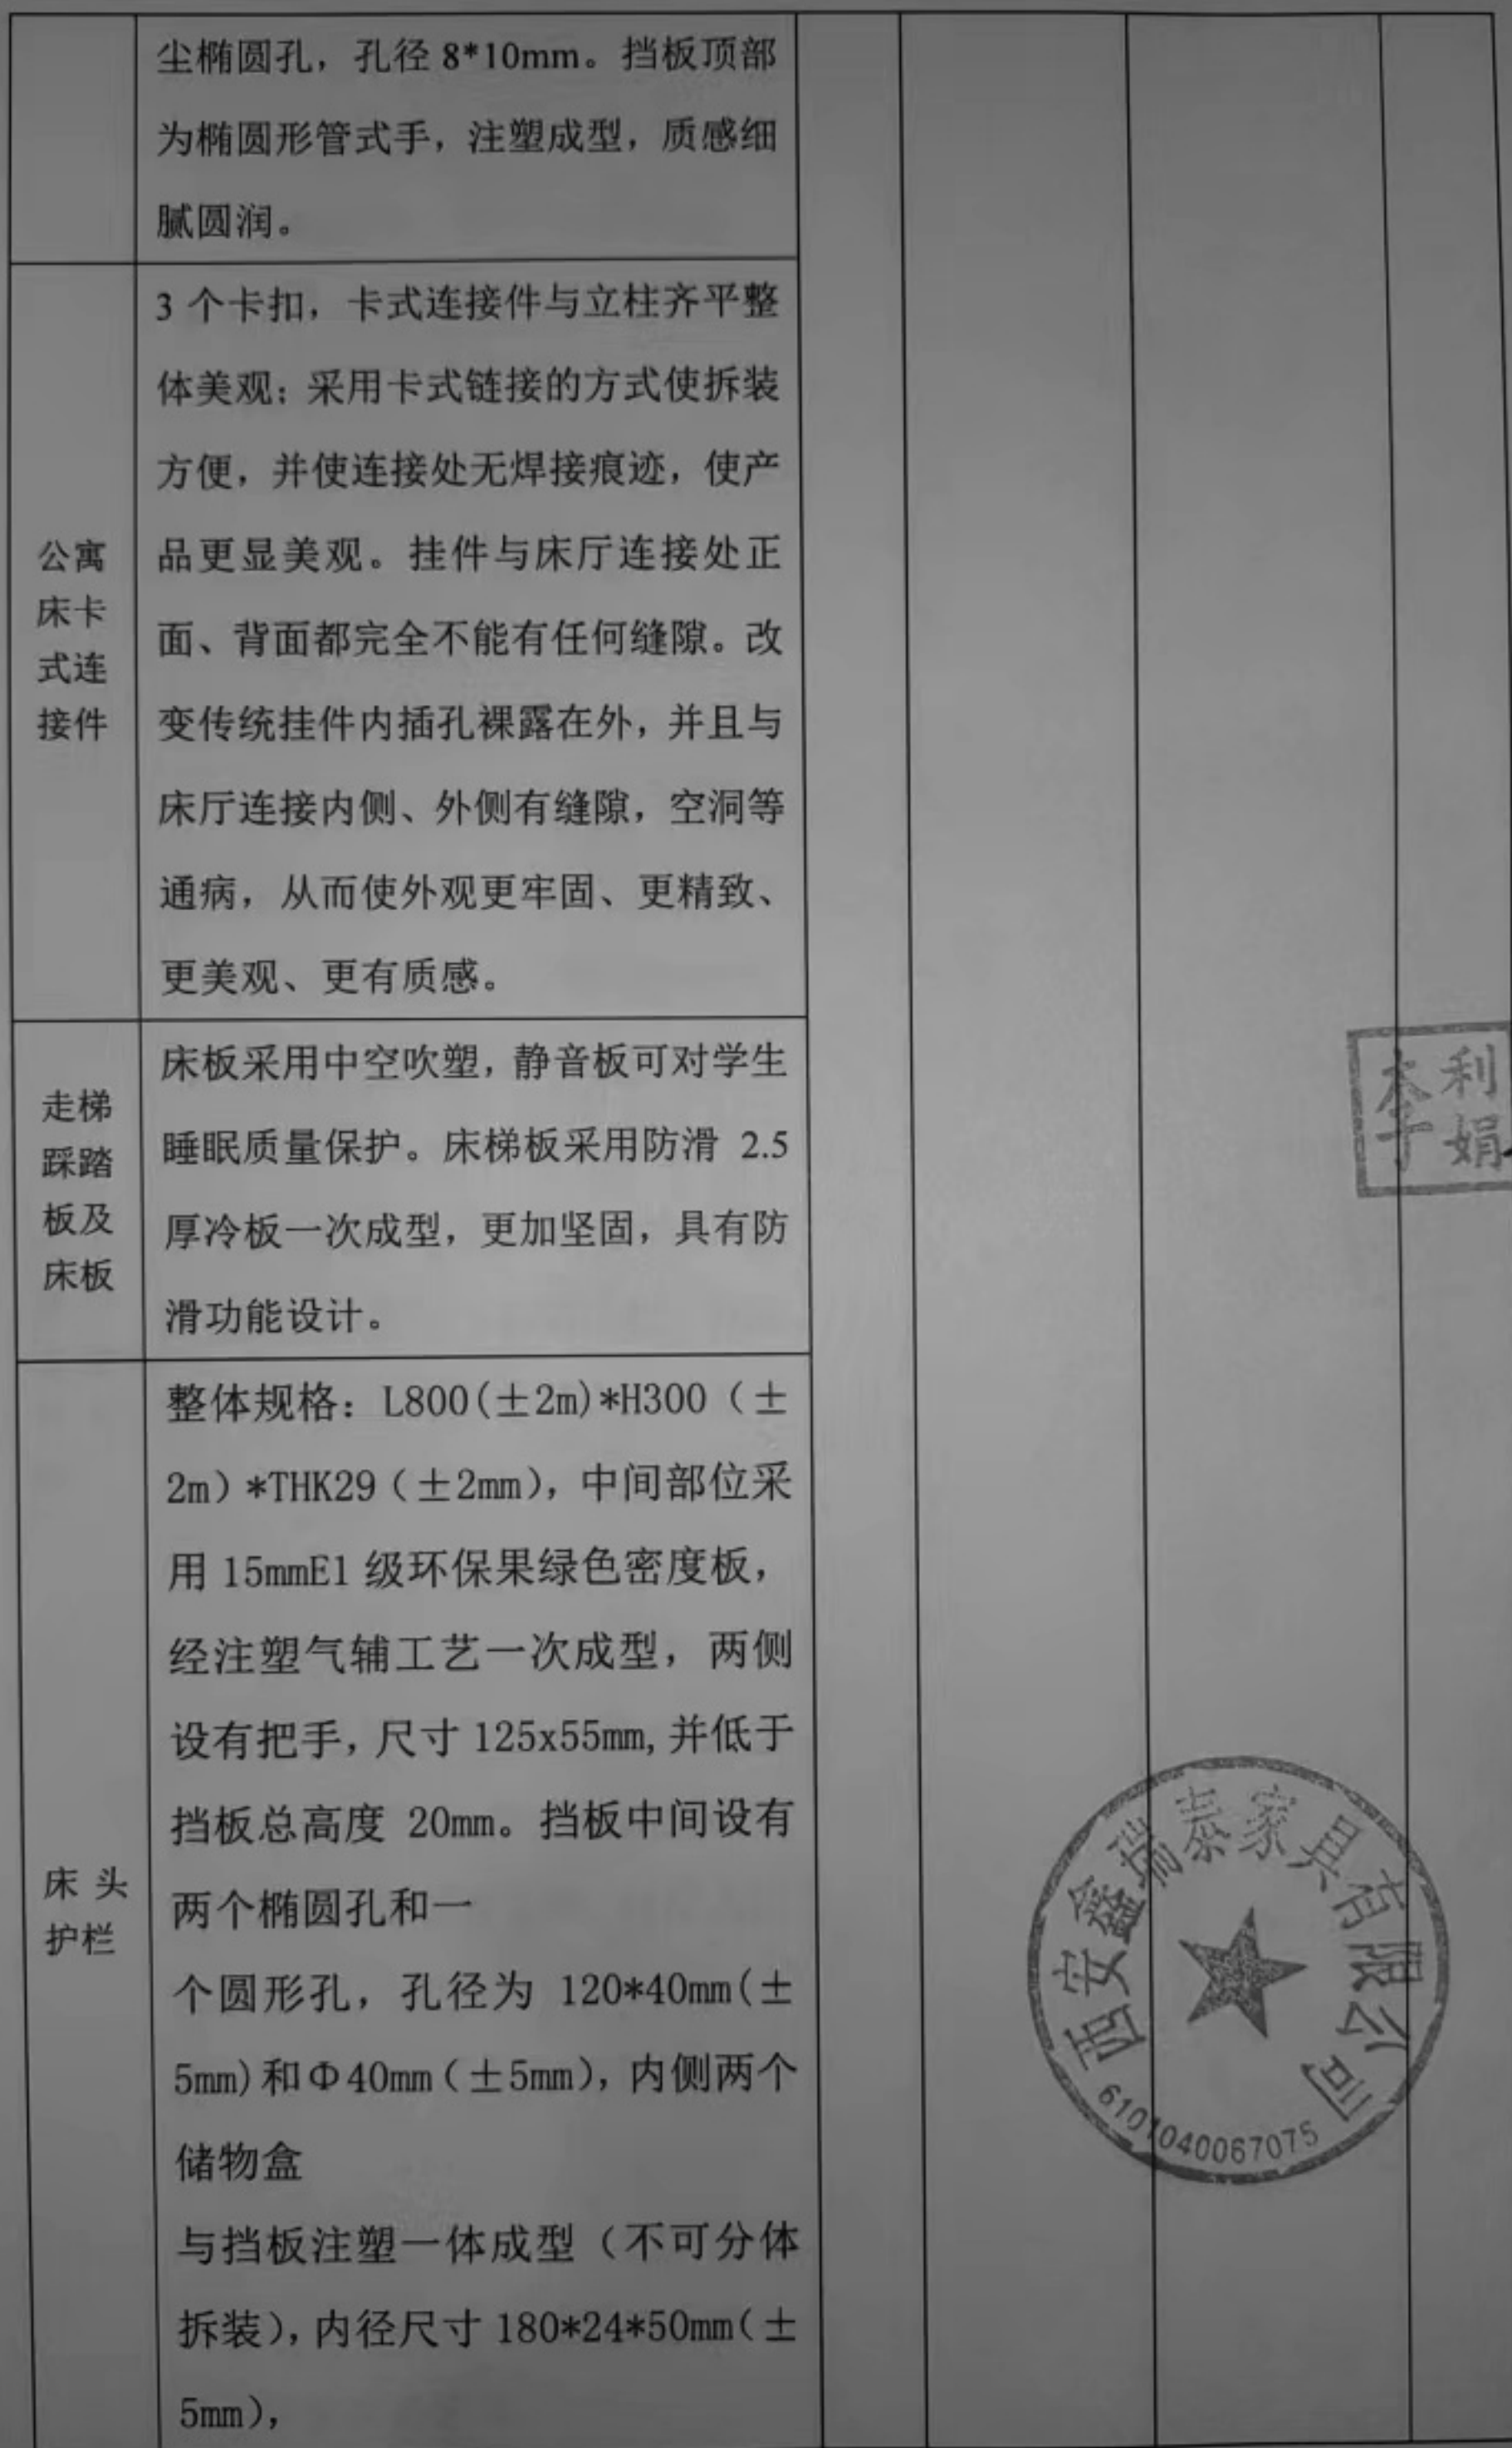 尘椭圆孔，孔径 8*10mm。挡板顶部
为椭圆形管式手，注塑成型，质感细
腻圆润。
公寓
床卡
式连
接件
3 个卡扣，卡式连接件与立柱齐平整
体美观；采用卡式链接的方式使拆装
方便，并使连接处无焊接痕迹，使产
品更显美观。挂件与床厅连接处正
面、背面都完全不能有任何缝隙。改
变传统挂件内插孔裸露在外，并且与
床厅连接内侧、外侧有缝隙，空洞等
通病，从而使外观更牢固、更精致、
更美观、更有质感。
走梯
踩踏
板及
床板
床板采用中空吹塑，静音板可对学生
睡眠质量保护。床梯板采用防滑 2.5
厚冷板一次成型，更加坚固，具有防
滑功能设计。
床 头
护栏
整体规格：L800(±2m)*H300（±
2m）*THK29（±2mm），中间部位采
用 15mmE1 级环保果绿色密度板，
经注塑气辅工艺一次成型，两侧
设有把手，尺寸 125x55mm,并低于
挡板总高度 20mm。挡板中间设有
两个椭圆孔和一
个圆形孔，孔径为 120*40mm(±
5mm)和Φ40mm（±5mm），内侧两个
储物盒
与挡板注塑一体成型（不可分体
拆装），内径尺寸 180*24*50mm(±
5mm)，
李利娟
西安鑫瑞泰家具有限公司
6101040067075